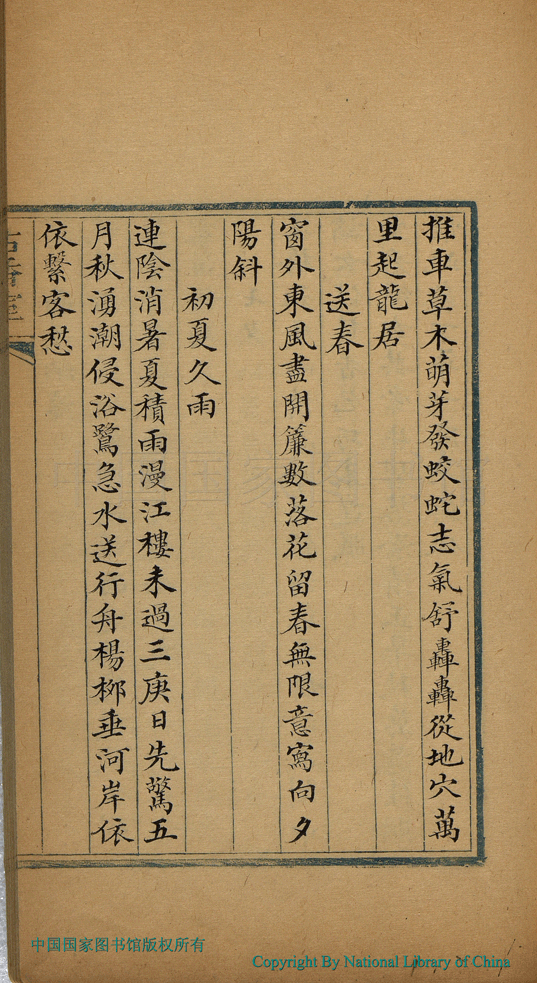 推車草木萌芽發蛟蛇志氣舒轟轟從地穴萬
里起龍居
送春
窗外東風盡開簾數落花留春無限意寫向夕
陽斜
初夏久雨
連陰消暑夏積雨漫江樓未過三庚日先驚五
月秋湧潮侵浴鷺急水送行舟楊柳垂河岸依
依繫客愁
中国国家图书馆版权所有
Copyright By National Library of China